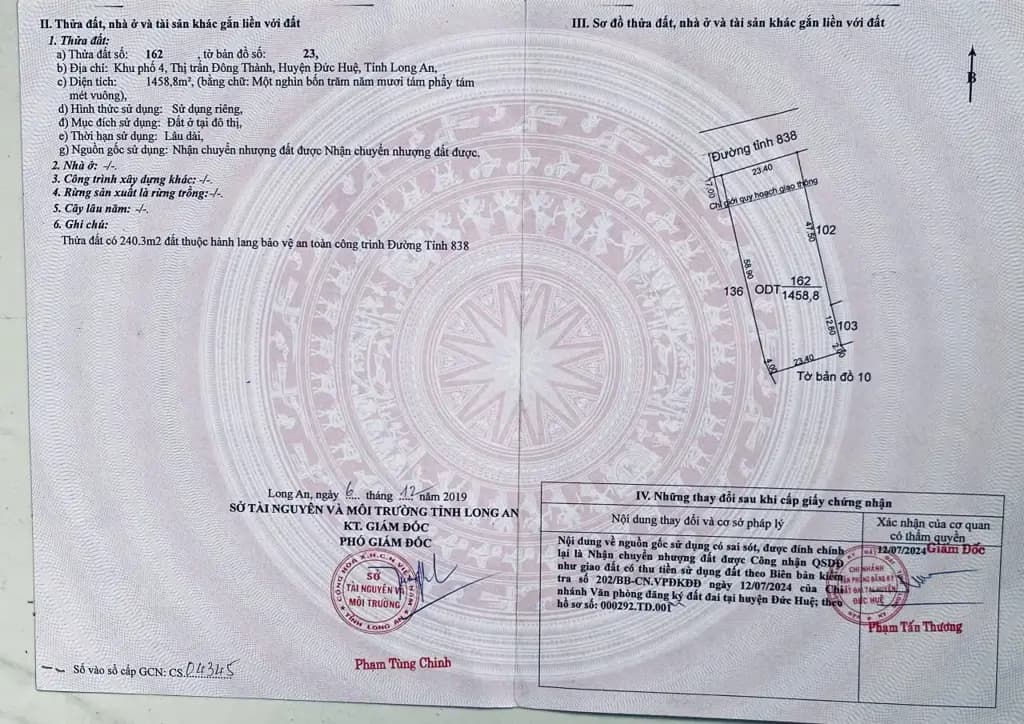 II. Thửa đất, nhà ở và tài sản khác gắn liền với đất
1. Thửa đất:
a) Thửa đất số: 162 , tờ bản đồ số: 23,
b) Địa chỉ: Khu phố 4, Thị trấn Đông Thành, Huyện Đức Huệ, Tỉnh Long An,
c) Diện tích: 1458,8m², (bằng chữ: Một nghìn bốn trăm năm mươi tám phẩy tám
mét vuông),
d) Hình thức sử dụng: Sử dụng riêng,
đ) Mục đích sử dụng: Đất ở tại đô thị,
e) Thời hạn sử dụng: Lâu dài,
g) Nguồn gốc sử dụng: Nhận chuyển nhượng đất được Nhận chuyển nhượng đất được.
2. Nhà ở: -/-.
3. Công trình xây dựng khác: -/-.
4. Rừng sản xuất là rừng trồng:-/-.
5. Cây lâu năm: -/-.
6. Ghi chú:
Thửa đất có 240.3m2 đất thuộc hành lang bảo vệ an toàn công trình Đường Tỉnh 838
Long An, ngày 6 tháng 12 năm 2019
SỞ TÀI NGUYÊN VÀ MÔI TRƯỜNG TỈNH LONG AN
KT. GIÁM ĐỐC
PHÓ GIÁM ĐỐC
CỘNG HÒA X.H.C.N VIỆT NAM
SỞ
TÀI NGUYÊN VÀ
MÔI TRƯỜNG
TỈNH LONG AN
Phạm Tùng Chinh
Số vào sổ cấp GCN: CS.04345
III. Sơ đồ thửa đất, nhà ở và tài sản khác gắn liền với đất
B
Đường tỉnh 838
23.40
7.00
Chỉ giới quy hoạch giao thông
47.50
102
58.90
136
ODT
162
1458,8
12.80
103
23.40
4.00
Tờ bản đồ 10
IV. Những thay đổi sau khi cấp giấy chứng nhận
Nội dung thay đổi và cơ sở pháp lý
Xác nhận của cơ quan
có thẩm quyền
Nội dung về nguồn gốc sử dụng có sai sót, được đính chính
lại là Nhận chuyển nhượng đất được Công nhận QSDĐ
như giao đất có thu tiền sử dụng đất theo Biên bản kiểm
tra số 202/BB-CN.VPĐKĐĐ ngày 12/07/2024 của Chi
nhánh Văn phòng đăng ký đất đai tại huyện Đức Huệ; theo
hồ sơ số: 000292.TD.001
12/07/2024
Giám Đốc
CHI NHÁNH
VĂN PHÒNG ĐĂNG KÝ
ĐẤT ĐAI TẠI HUYỆN
ĐỨC HUỆ
Phạm Tấn Thương